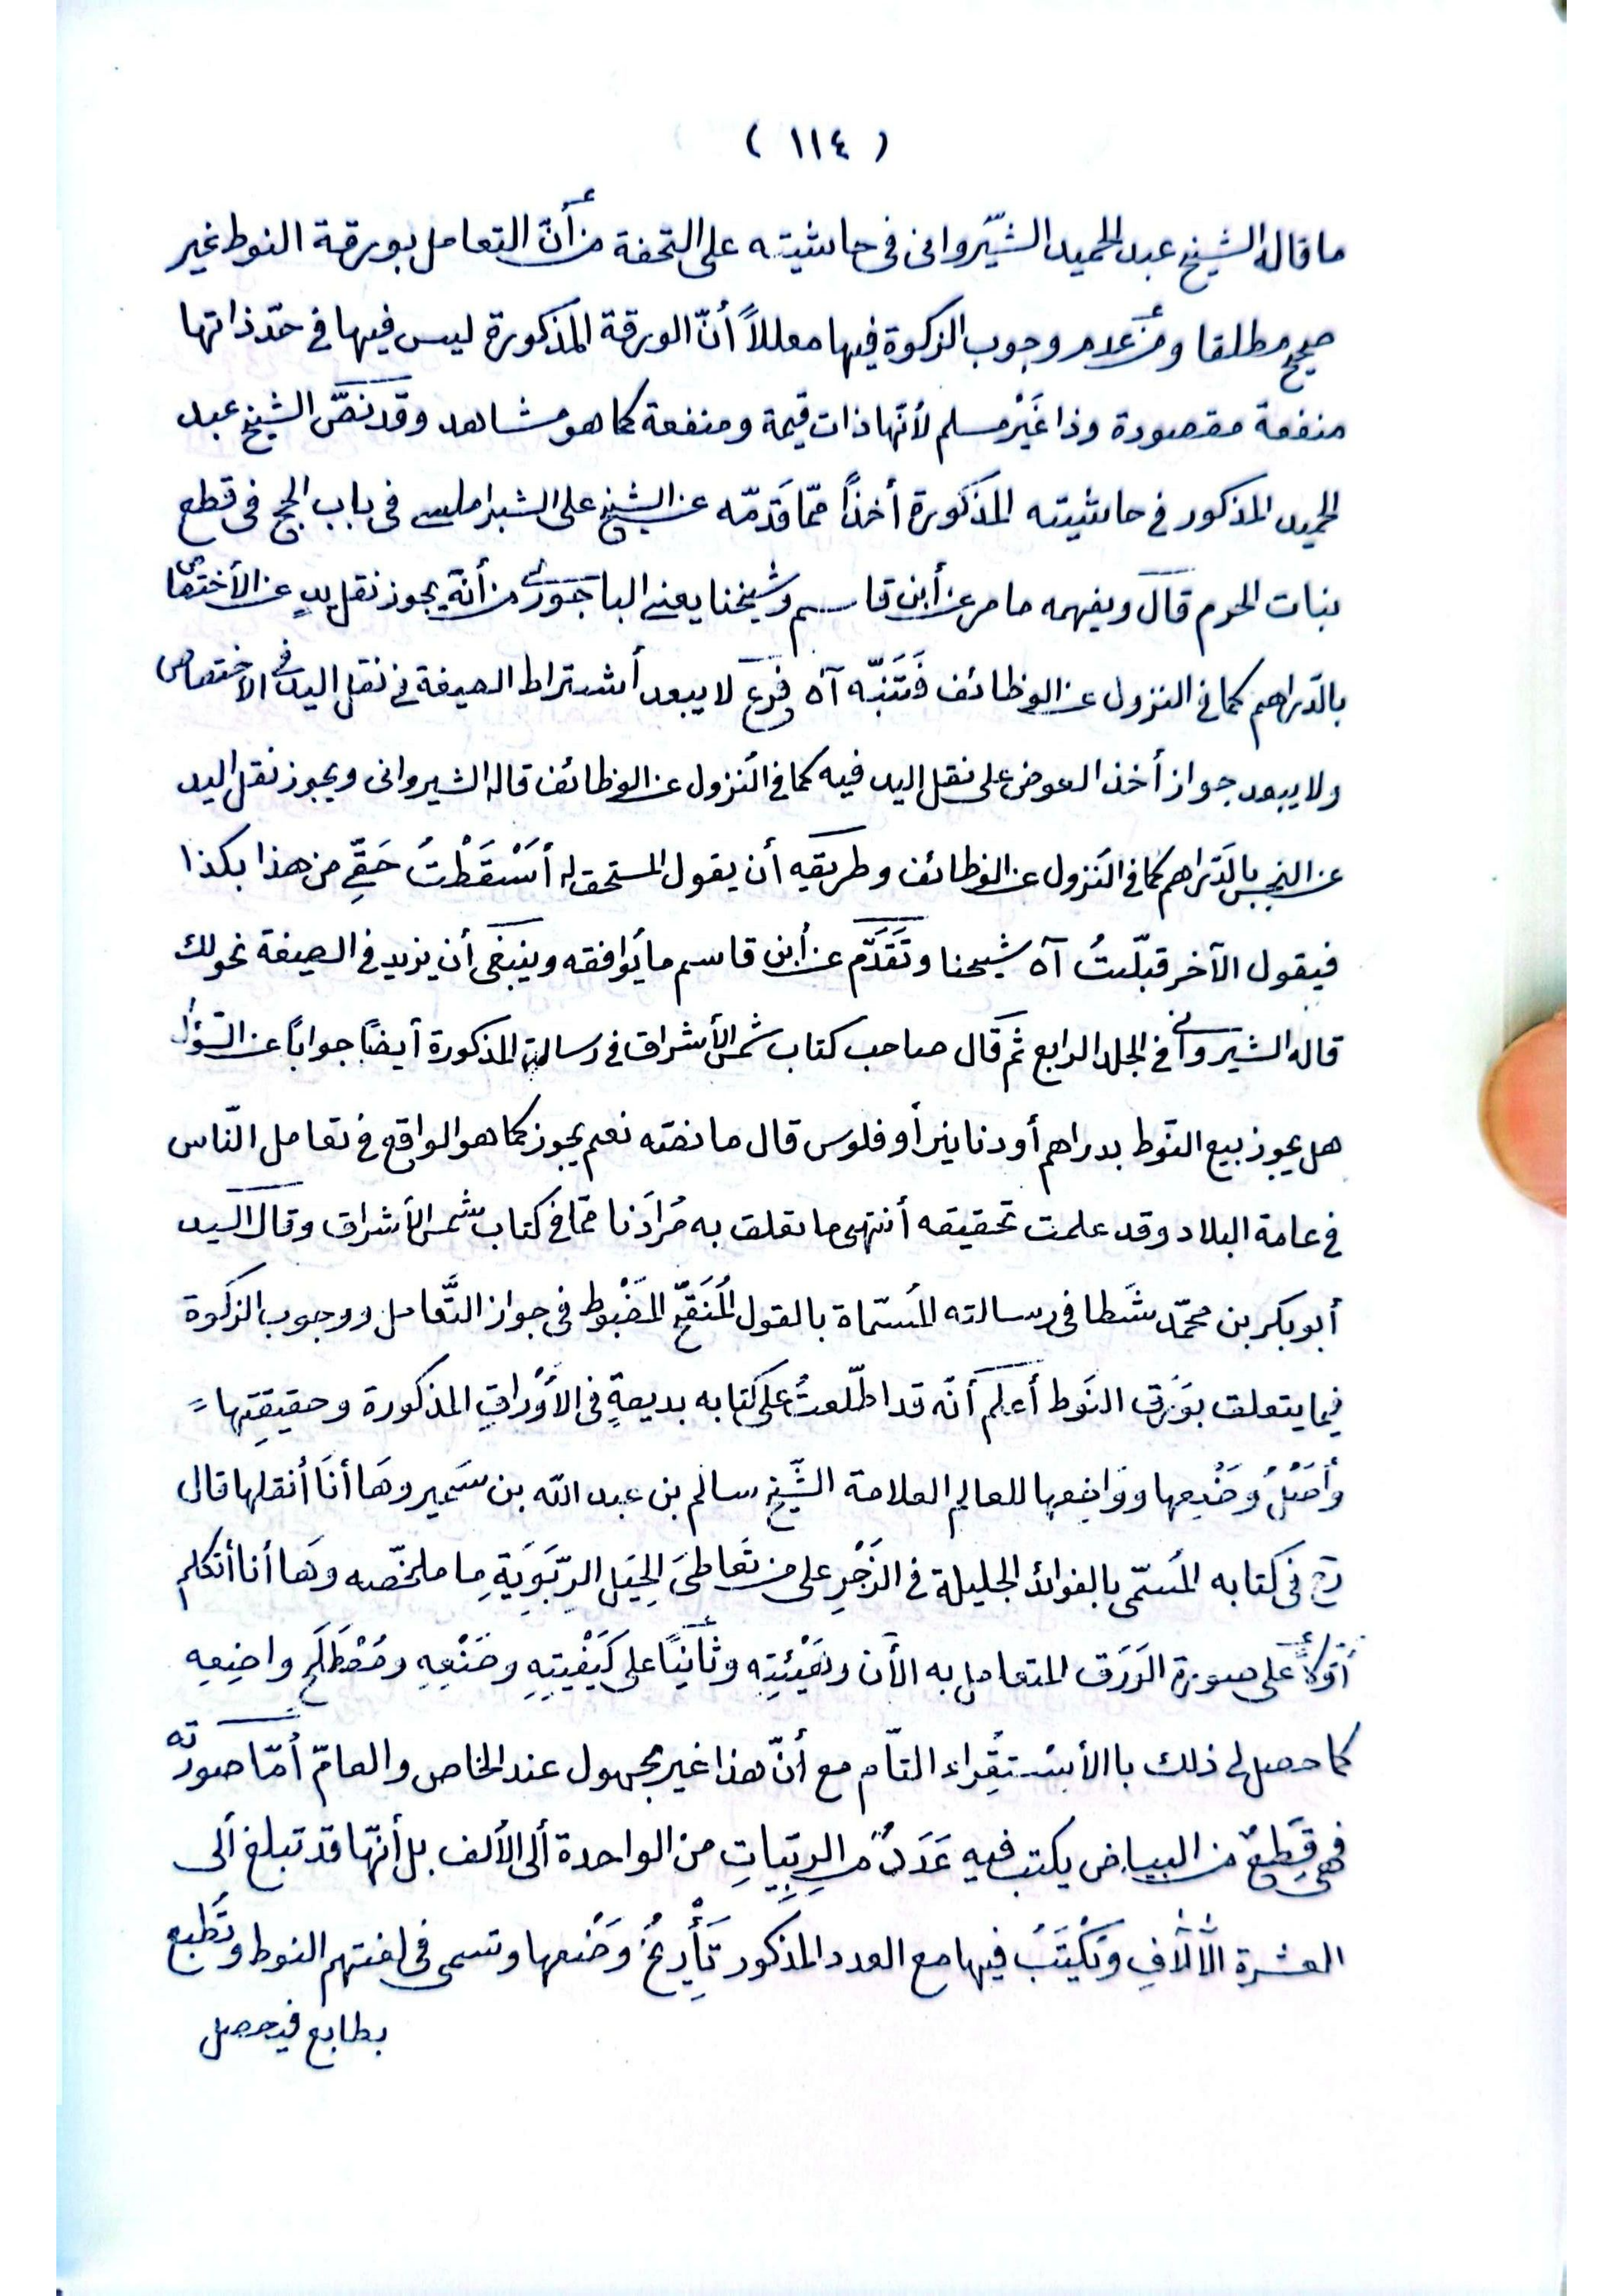 ( ١١٤ )
ما قاله الشيخ عبد الحميد الشيرواني في حاشيته على التحفة من أنّ التعامل بورقة النوط غير
صحيح مطلقا ومن عدم وجوب الزكوة فيها معللاً أنّ الورقة المذكورة ليس فيها في حدّ ذاتها
منفعة مقصودة وذا غَيْر مسلم لأنّها ذات قيمة ومنفعة كما هو مشاهد وقد نصّ الشيخ عبد
الحميد المذكور في حاشيته المذكورة أخذاً ممّا قدّمه عن الشيخ على الشبراملسي في باب الحج في قطع
نبات الحرم قال ويفهمه ما مر عن أبن قاسم وشيخنا يعني الباجوري من أنّه يجوز نقل يدٍ عن الأختصاص
بالدّراهم كما في النزول عن الوظائف فَتَنَبّه آه فرع لا يبعد أشتراط الصيغة في نقل اليد في الاختصاص
ولا يبعد جواز أخذ العوض على نقل اليد فيه كما في النزول عن الوظائف قاله الشيرواني ويجوز نقل اليد
عن النجس بالدّراهم كما في النزول عن الوظائف وطريقه أن يقول المستحق له أَسْقَطْتُ حَقّي من هذا بكذا
فيقول الآخر قبلتُ آه شيخنا وتَقَدَّم عن أبن قاسم ما يوافقه وينبغي أن يزيد في الصيغة نحو لك
قاله الشيرواني في الجلد الرابع ثم قال صاحب كتاب شمس الأشراق في رسالته المذكورة أيضاً جواباً عن السّؤال
هل يجوز بيع النّوط بدراهم أو دنانير أو فلوس قال ما نصّه نعم يجوز كما هو الواقع في تعامل النّاس
في عامة البلاد وقد علمت تحقيقه أنتهى ما تعلق به مُرَادُنا ممّا في كتاب شمس الأشراق وقال السيد
أبو بكر بن محمّد شَطا في رسالته المسمّاة بالقول المُنَقّح المَضْبُوط في جواز التَّعامل ووجوب الزكوة
فيما يتعلق بوَرَق النّوط أعلم أنّه قد اطّلعتُ على كتابه بديعةٍ في الأَوْراقِ المذكورة وحقيقتِها =
وأَصْلِ وَضْعِها ووَاضِعِها للعالم العلامة الشّيخ سالم بن عبد الله بن سَمير وهَا أنَا أنقلها قال
رح في كتابه المُسمّى بالفوائد الجليلة في الزَجْرِ على من تَعَاطَى الحِيَل الرِّبَوِيَةِ ما ملخّصه وهَا أنا أتكلم
أوّلاً على صورة الوَرَق المتعامل به الأن وهَيْئتِه وثَانِيًا على كَيْفِيّتِهِ وصَنْعِهِ ومُصْطَلَحِ واضِعِهِ
كما حصل لي ذلك باالأسْتقِراء التاّم مع أنّ هذا غير مجهول عند الخاص والعامّ أمّا صورتُه
فهي قِطَعٌ من البياض يكتب فيه عَدَدٌ من الربّيات من الواحدة ألى الألف بل أنّها قد تبلغ ألى
العشرة الأالاَفِ وتُكْتَبُ فيها مع العدد المذكور تَأْرِيخُ وَضْعها وتسمى في لغتهم النوط وتُطْبع
بطابع فيحصل